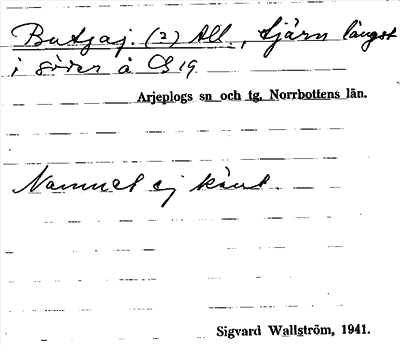 Butjaj. (2) All., tjärn längst
i söder å C 19
Arjeplogs sn och tg, Norrbottens län.
Namnet ej känt.
Sigvard Wallström, 1941.